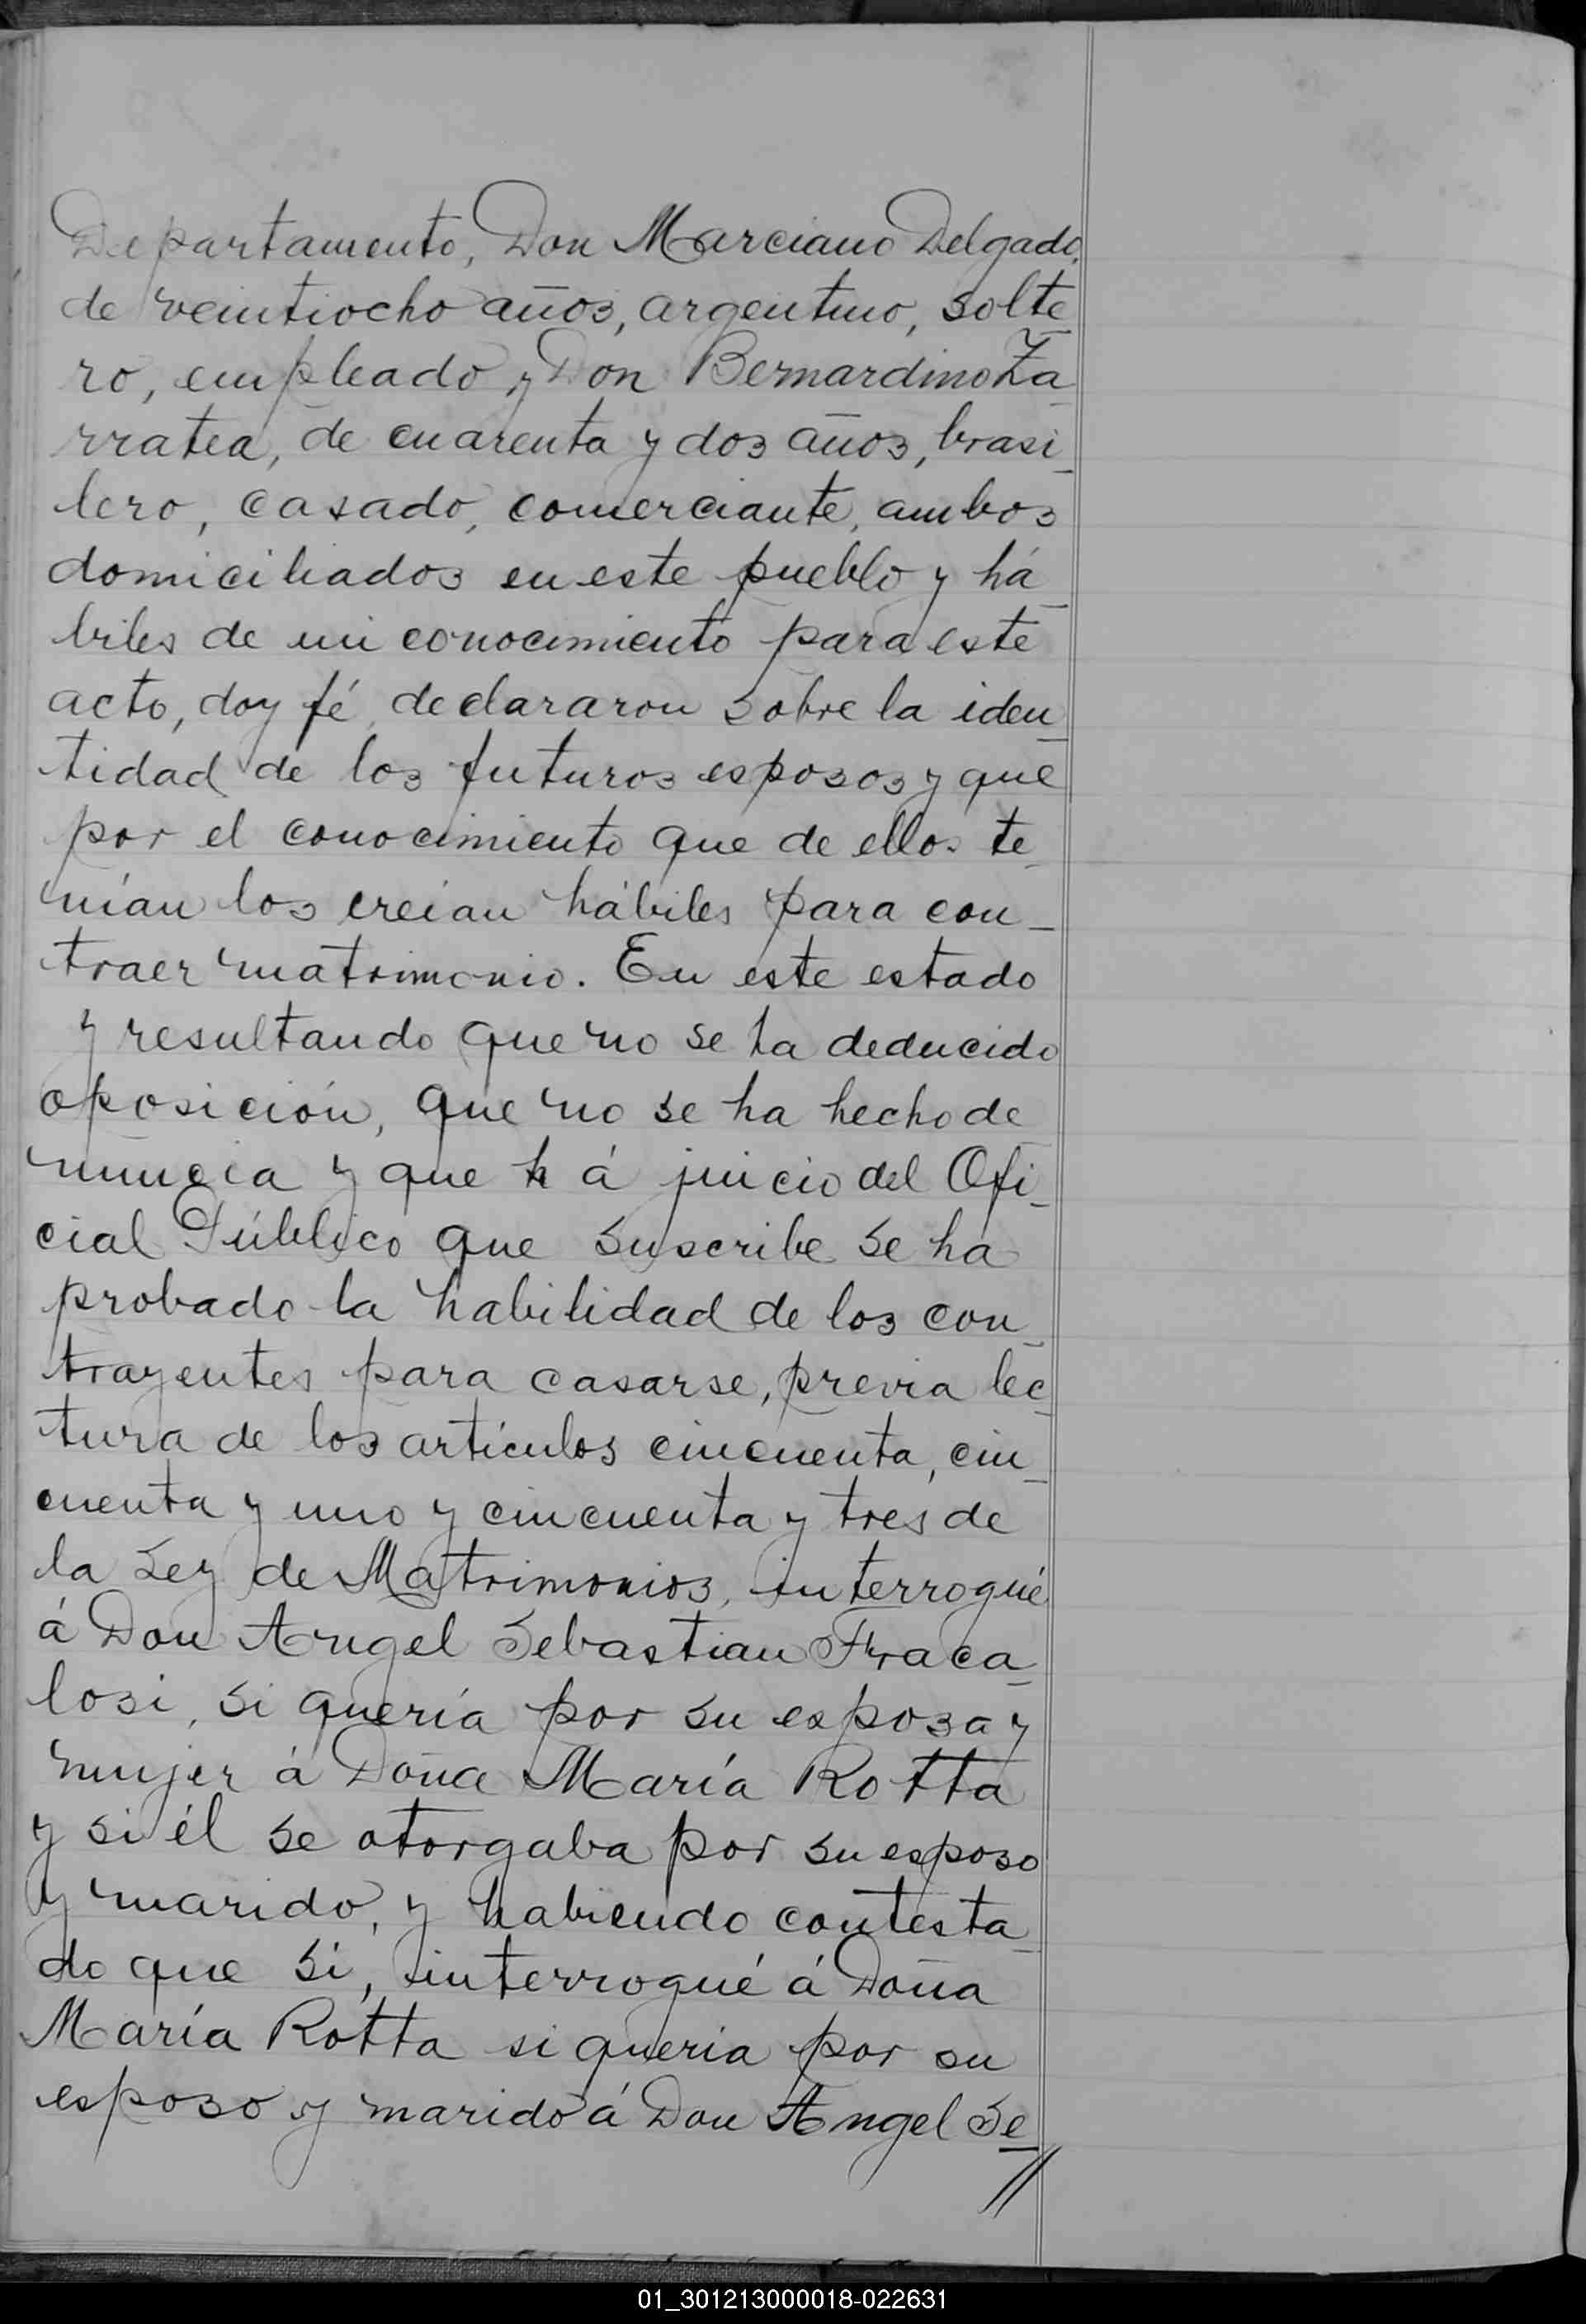 Departamento, Don Marciano Delgado,
de veintiocho años, argentino, solte
ro, empleado y Don Bernardino Za_
rratea, de cuarenta y dos años, brasi_
lero, casado, comerciante, ambos
domiciliados en este pueblo y há_
biles de mi conocimiento para este
acto, doy fé, declararon sobre la iden_
tidad de los futuros esposos y que
por el conocimiento que de ellos te_
nían los creian hábiles para con_
traer matrimonio. En este estado
y resultando que no se ha deducido
oposición, que no se ha hecho de
nuncia y que h á juicio del Ofi_
cial Público que suscribe se ha
probado la habilidad de los con_
trayentes para casarse, previa lec_
tura de los artículos cincuenta, cin_
cuenta y uno y cincuenta y tres de
la Ley de Matrimonios, interrogué
á Don Angel Sebastian Fraca_
losi, si quería por su esposa y
mujer á Doña María Rotta
y si él se otorgaba por su esposo
y marido, y habiendo contesta_
do que si, interrogué á Doña
María Rotta si queria por su
esposo y marido á Don Angel Se_
//
01_301213000018-022631